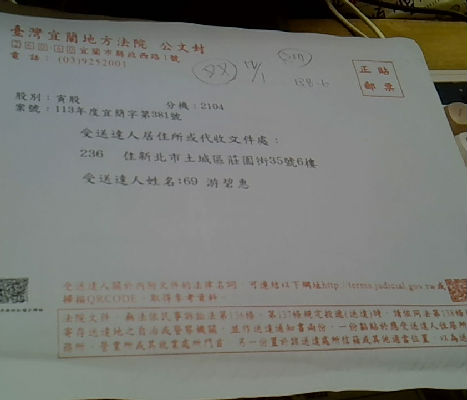 臺灣宜蘭地方法院 公文封
宜蘭市縣政西路1號
電話：(03)9252001
正貼
郵票
股別：宥股
分機：2104
案號：113年度宜簡字第381號
受送達人居住所或代收文件處：
236 住新北市土城區莊園街35號6樓
受送達人姓名:69 游碧惠
受送達人關於內附文件的法律名詞，可連結以下網址http://terms.judicial.gov.tw或
掃描QRCODE，取得參考資料。
法院文件，無法依民事訴訟法第136條、第137條規定投遞(送達)時，請依同法第138條
寄存送達地之自治或警察機關，並作送達通知書兩份，一份黏貼於應受送達人住居所
務所、營業所或其就業處所門首，另一份置於該送達處所信箱或其他適當位置，以為送